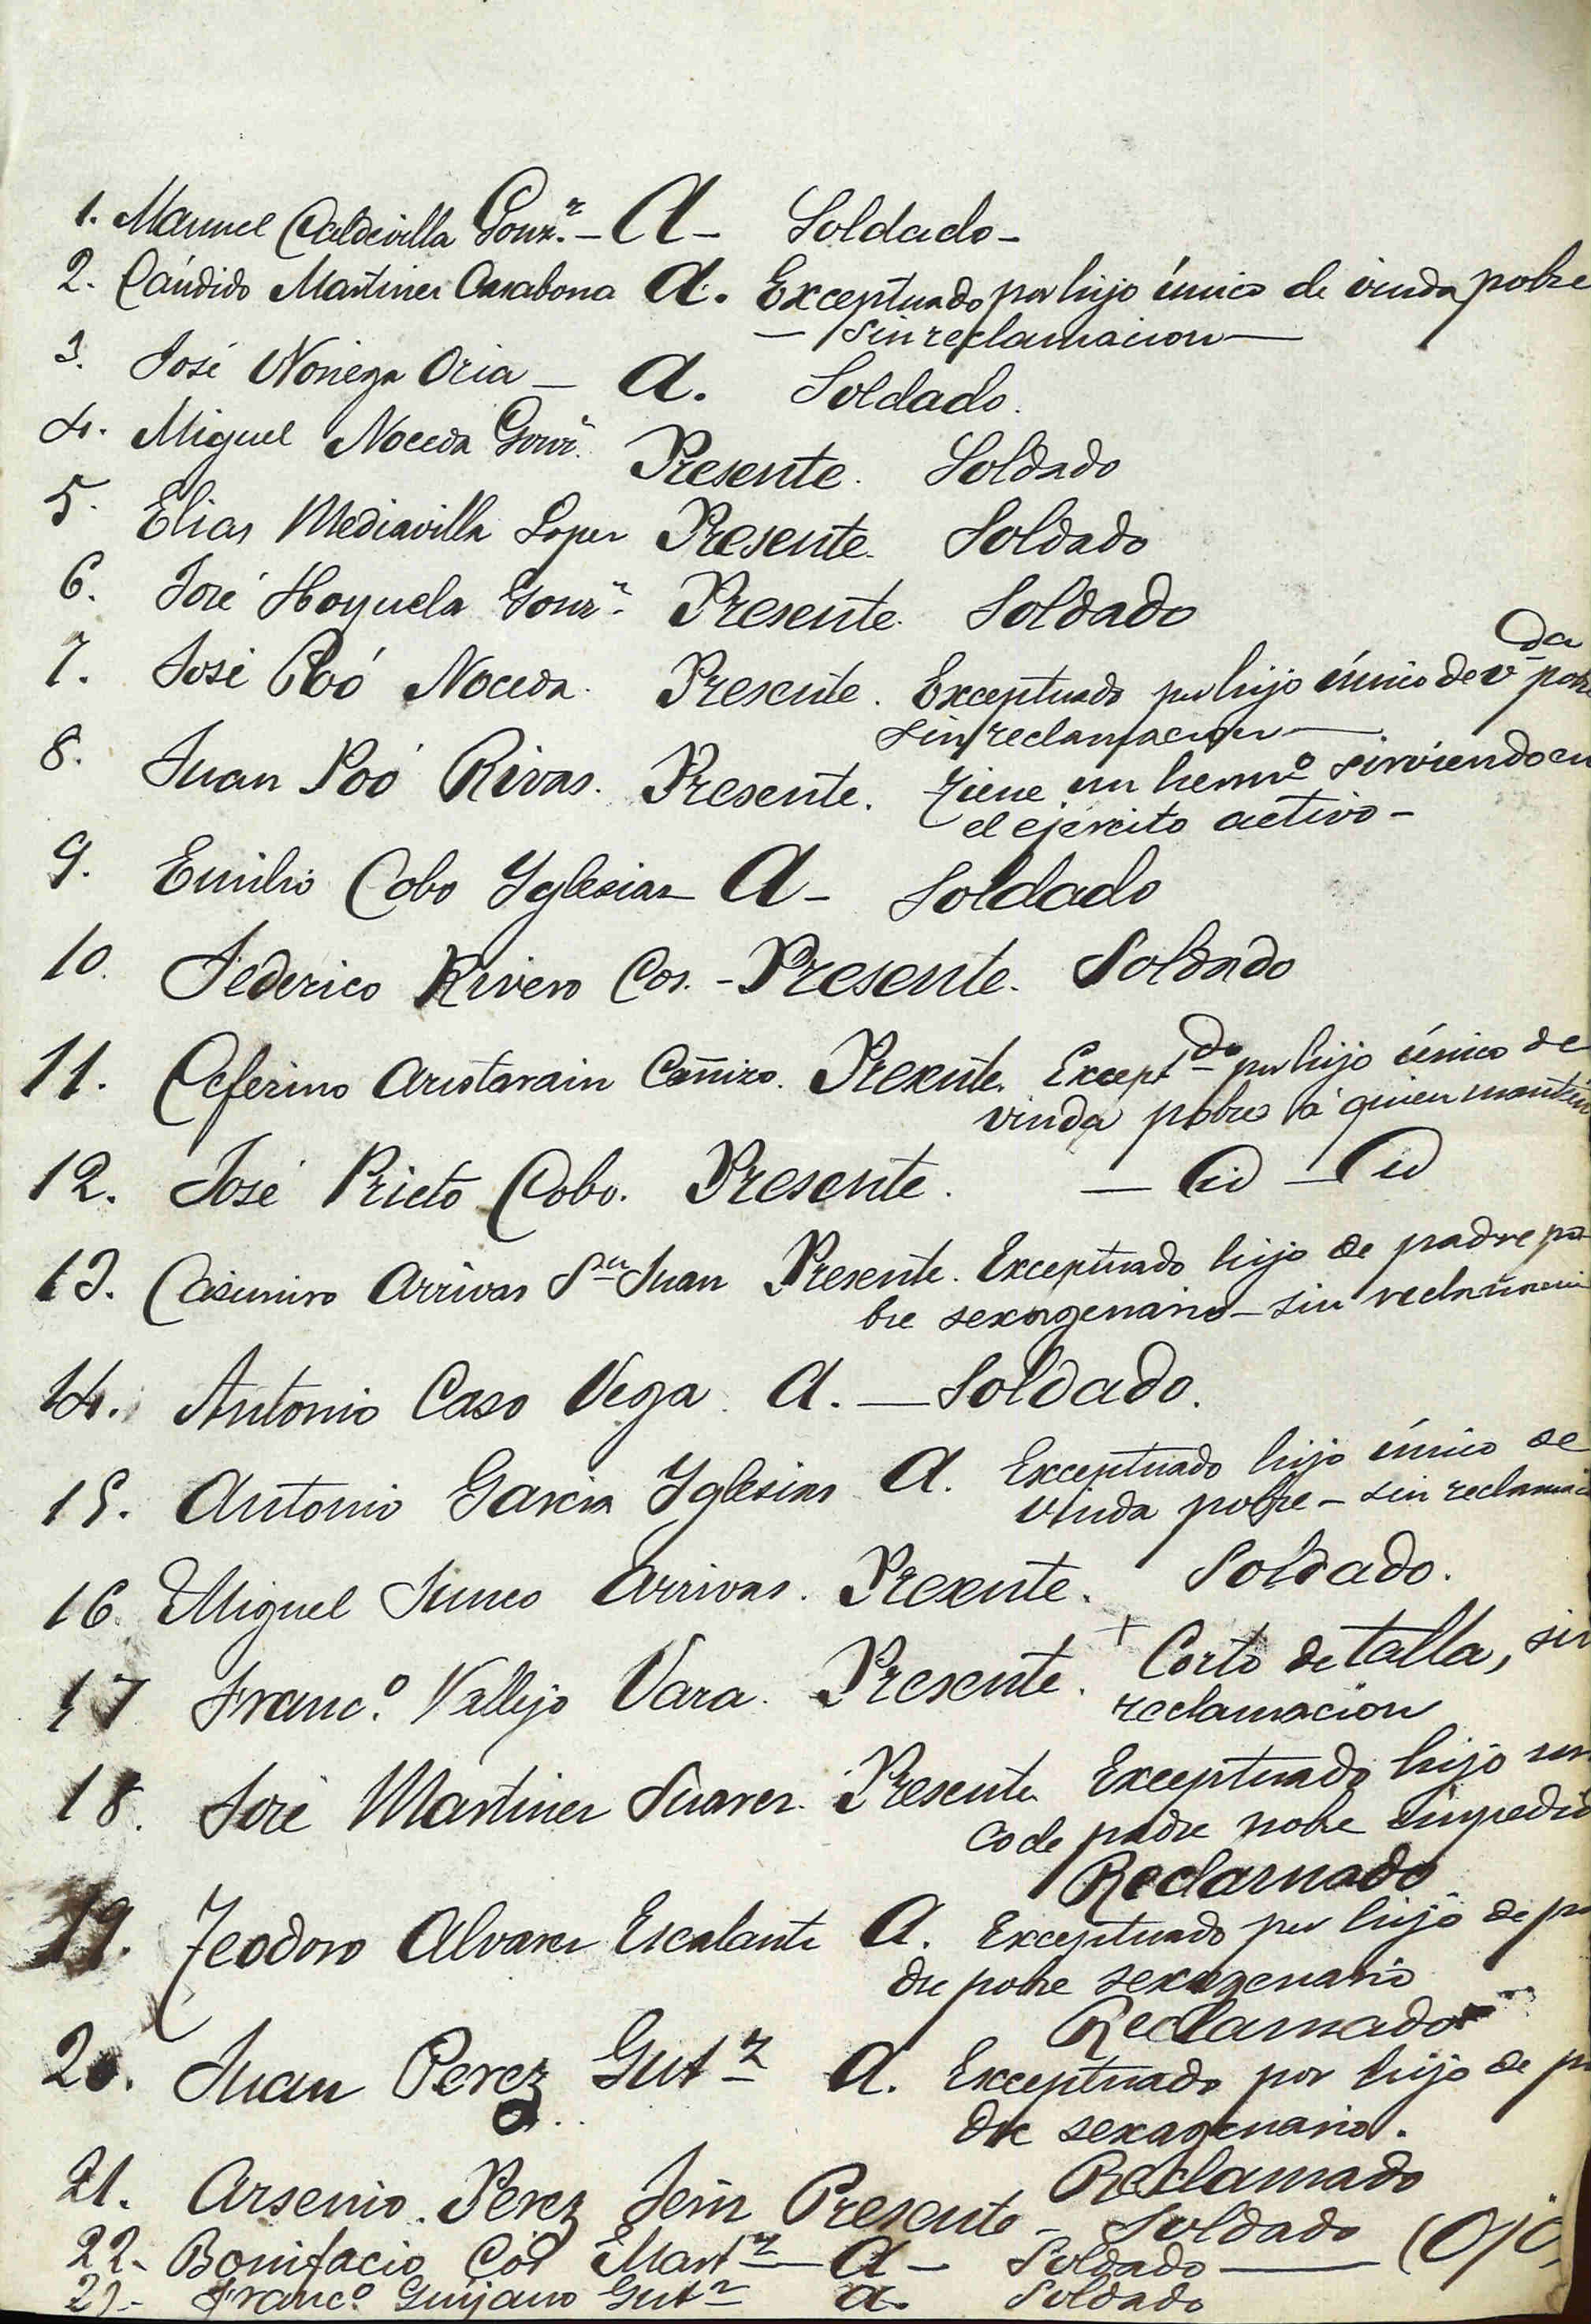 1. Manuel Caldevilla Gonz.z - A - Soldado -
2. Cándido Martinez Casabona A. Exceptuado por hijo único de viuda pobre
— sin reclamacion —
3. José Noriega Oria - A. Soldado.
4. Miguel Noceda Gonz. Presente. Soldado
5. Elias Mediavilla Lopez Presente. Soldado
6. José Hoyuela Gonz. Presente. Soldado
7. José Poó Noceda. Presente. Exceptuado por hijo único de v.da pobre
sin reclamacion —
8. Juan Poó Rivas. Presente. Tiene un hermo sirviendo en
el ejército activo -
9. Emilio Cobo Yglesias - A - Soldado
10. Federico Rivero Cos. - Presente. Soldado
11. Ceferino Aristarain Cañizo. Presente. Exceptdo por hijo único de
viuda pobre á quien mantien
12. José Prieto Cobo. Presente. — Id — Id
13. Casimiro Arrivas Sn Juan Presente. Exceptuado hijo de padre po-
bre sexagenario - sin reclamacion
14. Antonio Caso Vega. A. — Soldado.
15. Antonio Garcia Yglesias A. Exceptuado hijo único de
viuda pobre - sin reclamaci
16. Miguel Junco Arrivas. Presente. Soldado.
17 Franc.o Vallejo Vara. Presente. + Corto de talla, sin
reclamacion
18. José Martinez Suarez. Presente. Exceptuado hijo uni
co de padre pobre impedid
Reclamado
19. Teodoro Alvarez Escalante A. Exceptuado por hijo de pa
dre pobre sexagenario
Reclamado
20. Juan Perez Gutz A. Exceptuado por hijo de pa
dre sexagenario.
Reclamado
21. Arsenio Perez Presente - Soldado (Ojo,
22. Bonifacio Cos Martz — A - Soldado —
23. Franc.o Guijano Gutz A. Soldado